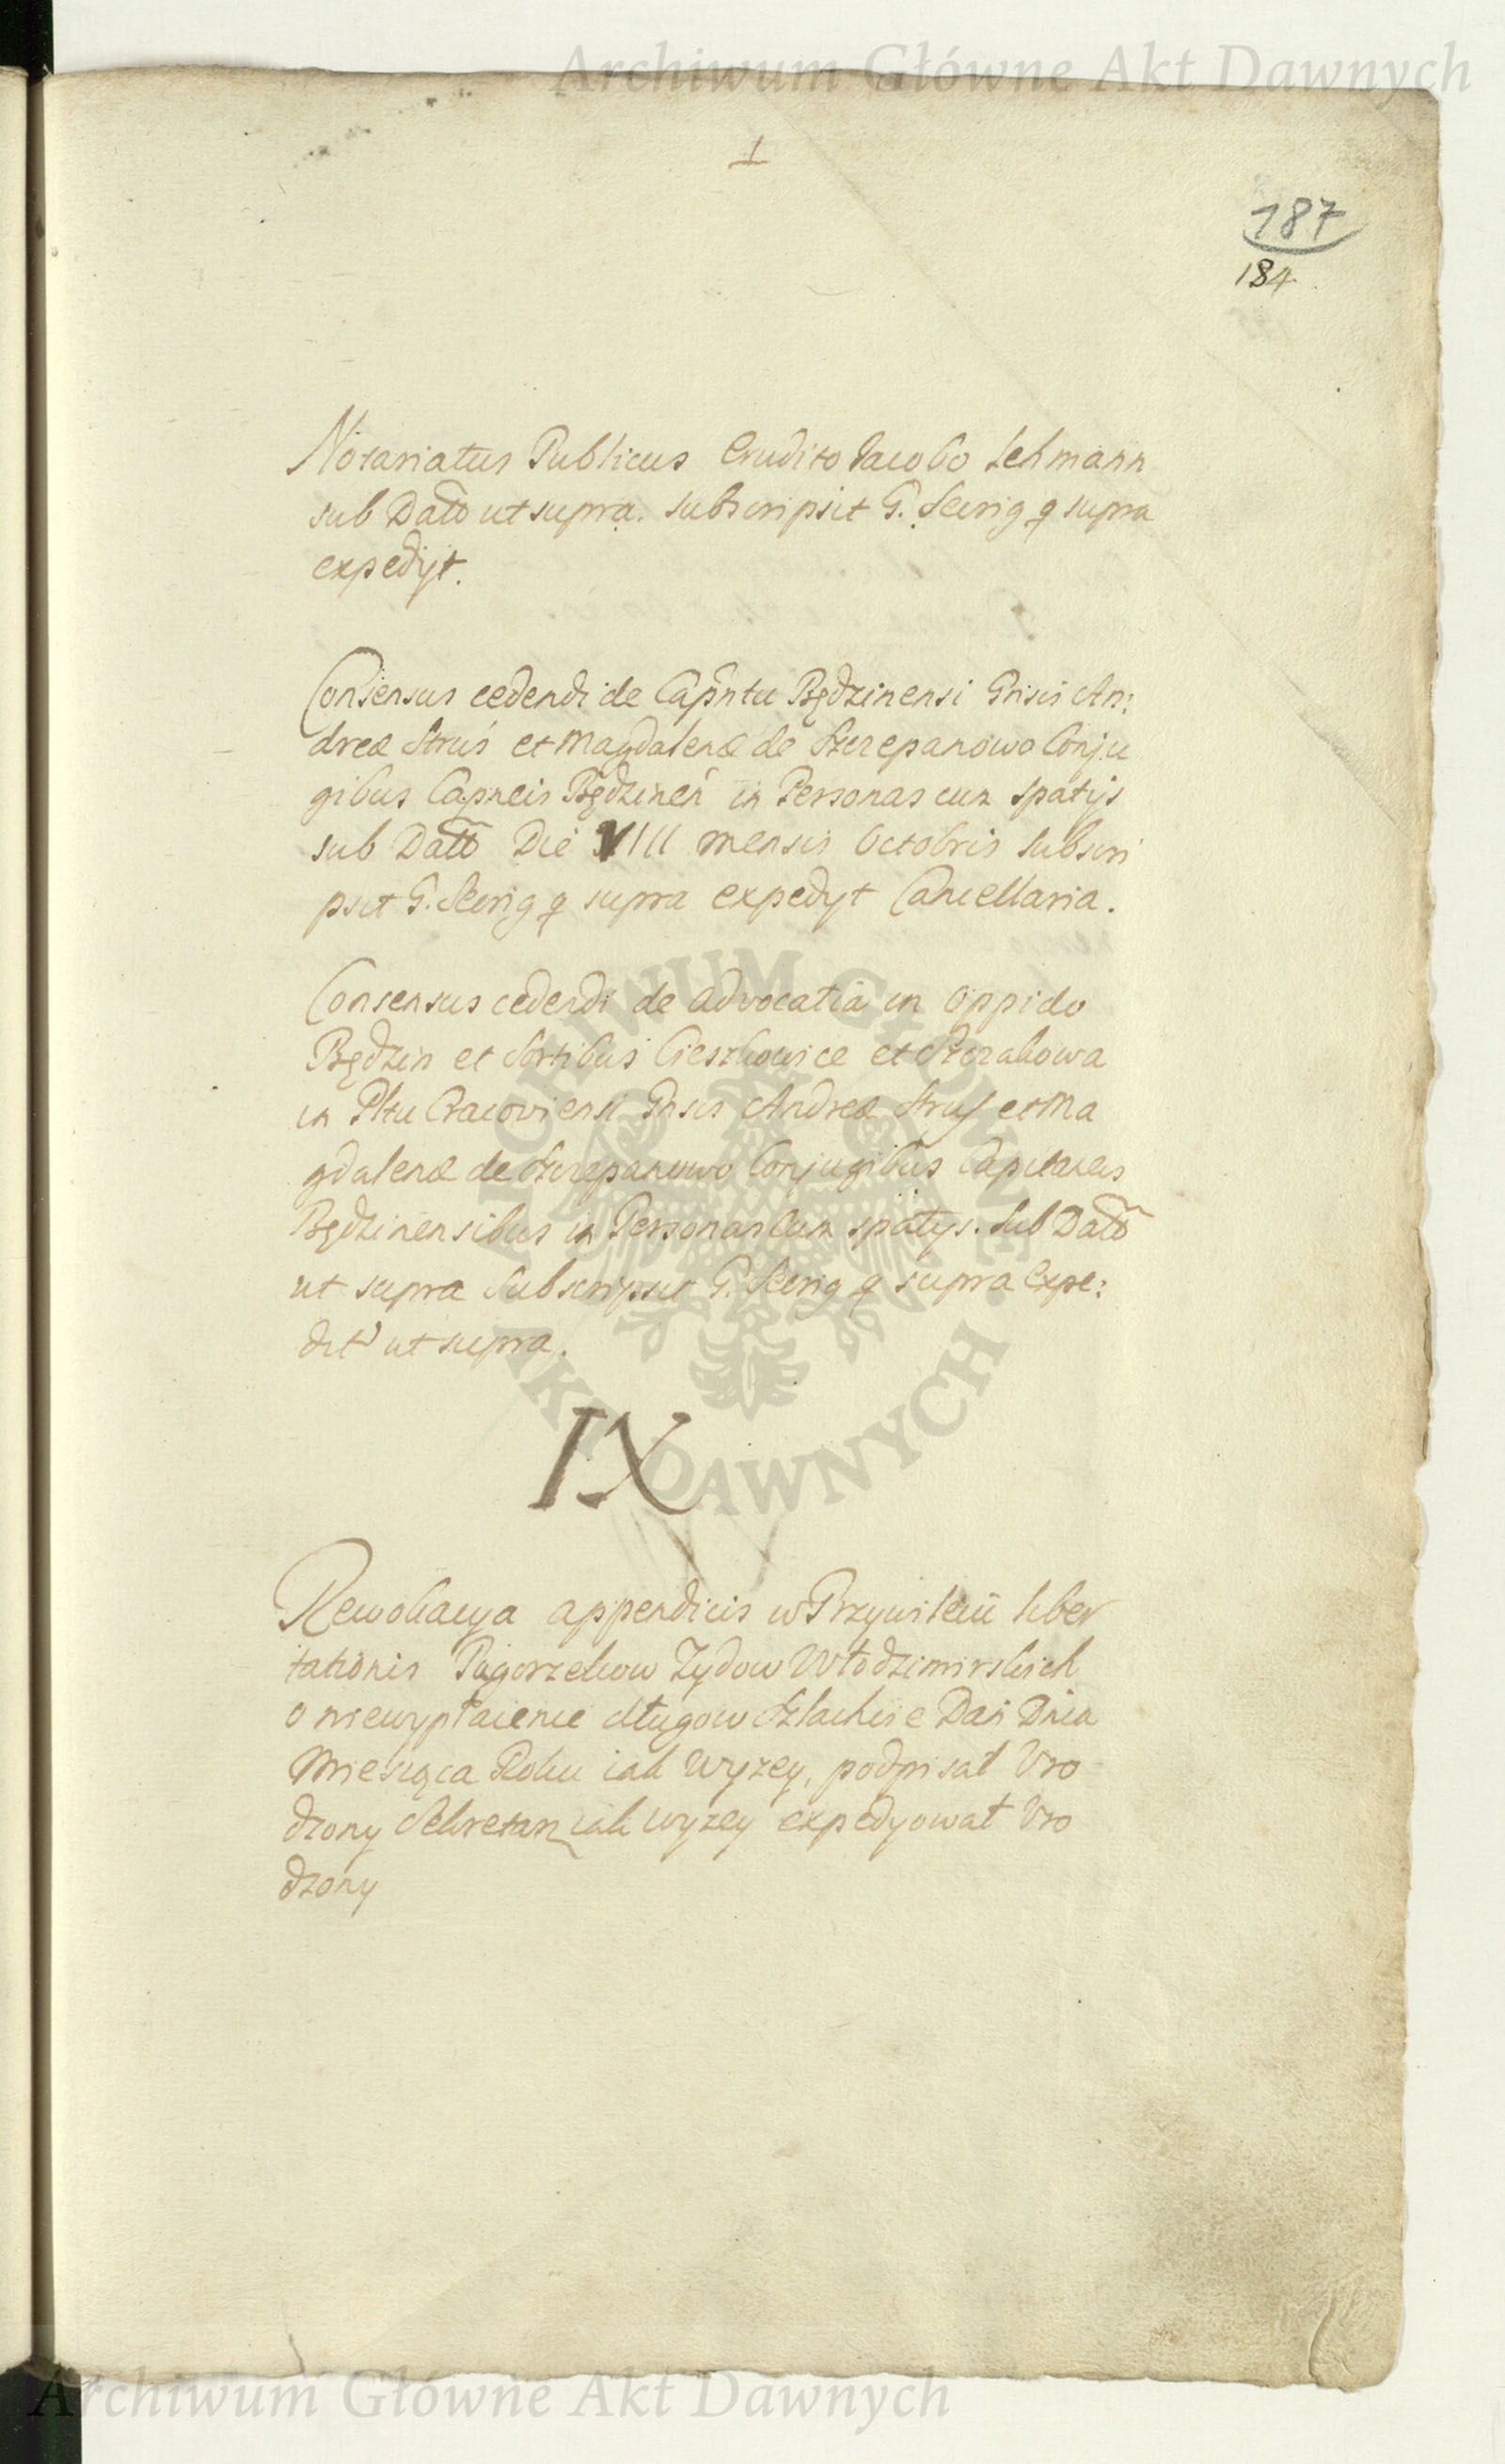 Archiwum Główne Akt Dawnych
1
187
184
Notariatus Publicus Erudito Jacobo Lehmann
sub Dato ut supra. subscripsit G. Secrig q supra
expedijt.
Consensus cedendi de Capntu Będzinensi Gnisis An:
dreæ Struś et Magdalenæ de Szczepanowo Conju
gibus Capneis Będzinen in Personas cum spatijs
sub Datto Die VIII mensis Octobris subscri
psit G. Secrig q supra expedyt Cancellaria.
Consensus cedendi de Advocatia in Oppido
Będzin et Sortibus Cieszkowice et
in Pltu Cracoviensi Gnsis Andreæ Strus et Ma
gdalenæ de Szczepanowo Conjugibus Capitaneis
Będzinensibus in Personas cum spatys. Sub Datto
ut supra Subscripsit G. Secrig q supra Expe:
dit ut supra.
IX
Rewokacya appendicis w Przywileiu liber
tationis Pogorzelcow Zydow Włodzimirskich
o niewypłacenie długow Szlachcie Dań Dnia
Miesiąca Roku iak wyzey, podpisał Vro
dzony Sekretarz iak wyzey expedyował Vro
dzony
ARCHIWUM GŁÓWNE AKT DAWNYCH
Archiwum Główne Akt Dawnych